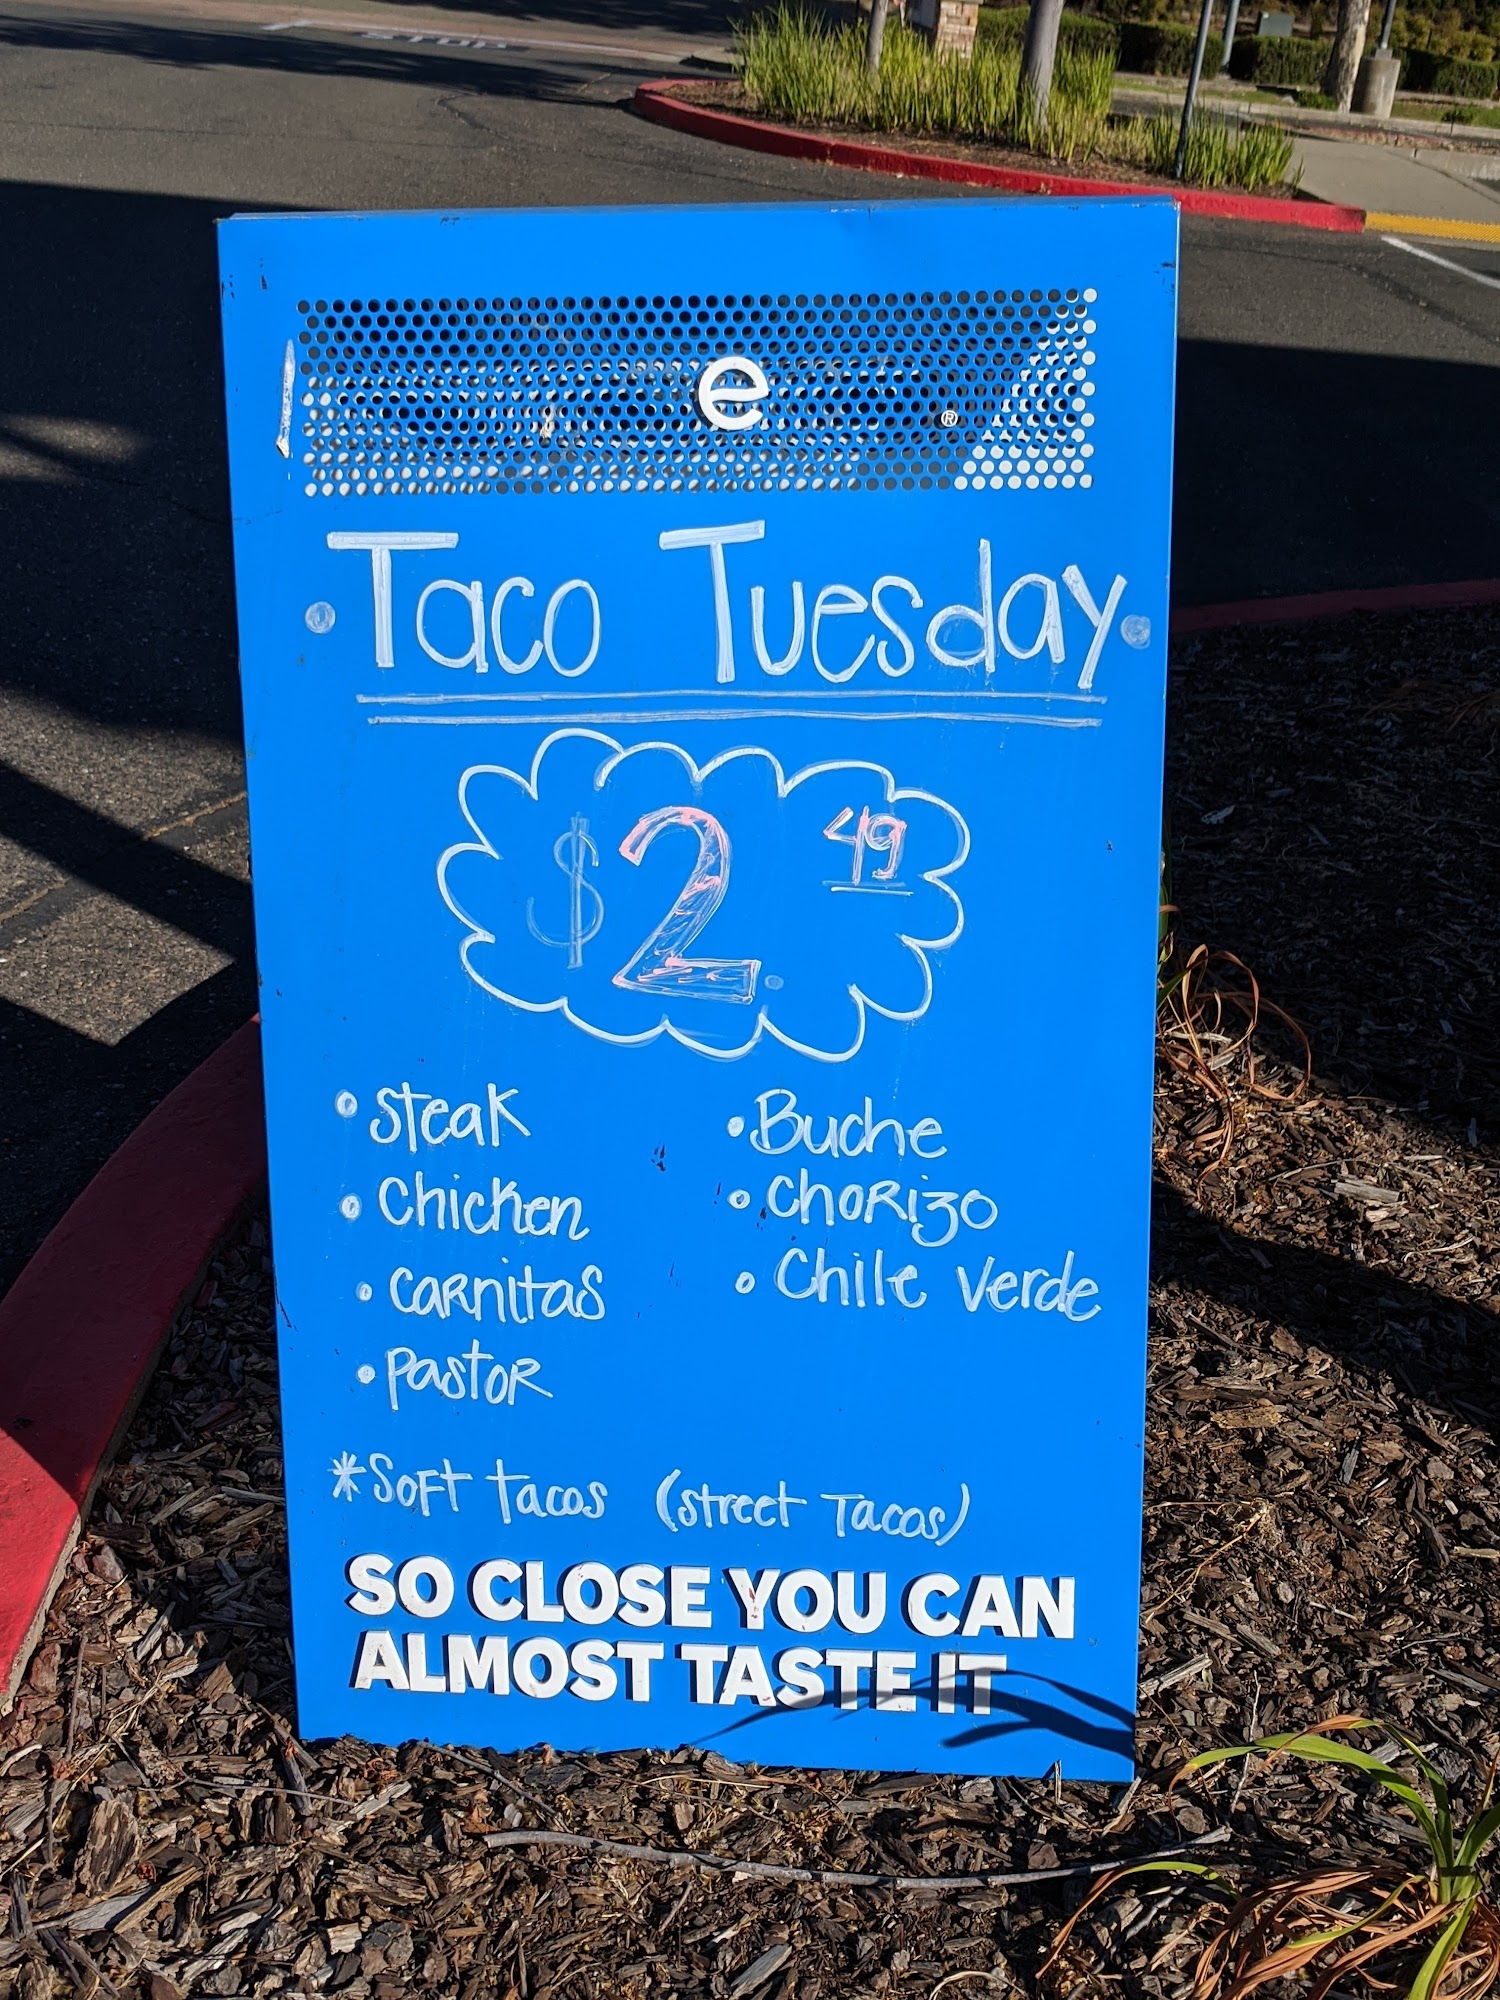 STOP
e ®
• Taco Tuesday •
$2.49
• Steak
• Chicken
• Carnitas
• Pastor
• Buche
• Chorizo
• Chile Verde
*Soft Tacos (Street Tacos)
SO CLOSE YOU CAN
ALMOST TASTE IT